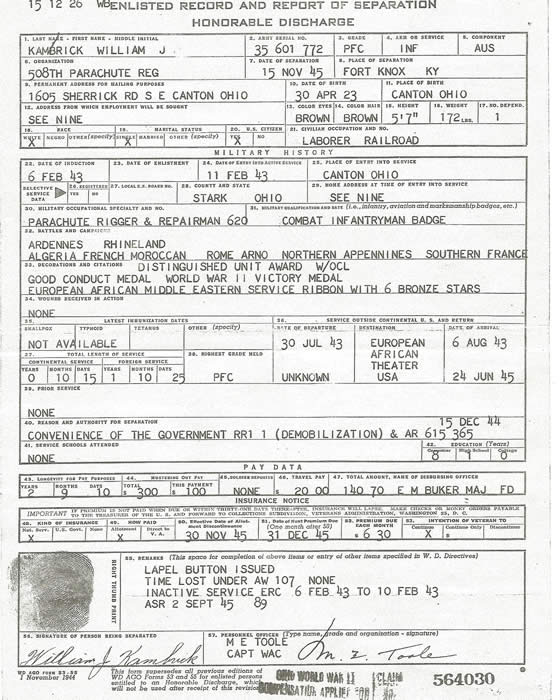 15 12 26 WB ENLISTED RECORD AND REPORT OF SEPARATION
HONORABLE DISCHARGE
1. LAST NAME - FIRST NAME - MIDDLE INITIAL 2. ARMY SERIAL NO. 3. GRADE 4. ARM OR SERVICE 5. COMPONENT
KAMBRICK WILLIAM J 35 601 772 PFC INF AUS
6. ORGANIZATION 7. DATE OF SEPARATION 8. PLACE OF SEPARATION
508TH PARACHUTE REG 15 NOV 45 FORT KNOX KY
9. PERMANENT ADDRESS FOR MAILING PURPOSES 10. DATE OF BIRTH 11. PLACE OF BIRTH
1605 SHERRICK RD S E CANTON OHIO 30 APR 23 CANTON OHIO
12. ADDRESS FROM WHICH EMPLOYMENT WILL BE SOUGHT 13. COLOR EYES 14. COLOR HAIR 15. HEIGHT 16. WEIGHT 17. NO. DEPEND.
SEE NINE BROWN BROWN 5'7" 172 LBS. 1
18. RACE 19. MARITAL STATUS 20. U.S. CITIZEN 21. CIVILIAN OCCUPATION AND NO.
WHITE NEGRO OTHER (specify) SINGLE MARRIED OTHER (specify) YES NO
X X X LABORER RAILROAD
MILITARY HISTORY
22. DATE OF INDUCTION 23. DATE OF ENLISTMENT 24. DATE OF ENTRY INTO ACTIVE SERVICE 25. PLACE OF ENTRY INTO SERVICE
6 FEB 43 11 FEB 43 CANTON OHIO
SELECTIVE SERVICE DATA 26. REGISTERED YES NO 27. LOCAL S.S. BOARD NO. 28. COUNTY AND STATE 29. HOME ADDRESS AT TIME OF ENTRY INTO SERVICE
STARK OHIO SEE NINE
30. MILITARY OCCUPATIONAL SPECIALTY AND NO. 31. MILITARY QUALIFICATION AND DATE (i.e., infantry, aviation and marksmanship badges, etc.)
PARACHUTE RIGGER & REPAIRMAN 620 COMBAT INFANTRYMAN BADGE
32. BATTLES AND CAMPAIGNS
ARDENNES RHINELAND
ALGERIA FRENCH MOROCCAN ROME ARNO NORTHERN APPENNINES SOUTHERN FRANCE
33. DECORATIONS AND CITATIONS DISTINGUISHED UNIT AWARD W/OCL
GOOD CONDUCT MEDAL WORLD WAR II VICTORY MEDAL
EUROPEAN AFRICAN MIDDLE EASTERN SERVICE RIBBON WITH 6 BRONZE STARS
34. WOUNDS RECEIVED IN ACTION
NONE
35. LATEST IMMUNIZATION DATES 36. SERVICE OUTSIDE CONTINENTAL U.S. AND RETURN
SMALLPOX TYPHOID TETANUS OTHER (specify) DATE OF DEPARTURE DESTINATION DATE OF ARRIVAL
NOT AVAILABLE 30 JUL 43 EUROPEAN 6 AUG 43
37. TOTAL LENGTH OF SERVICE 38. HIGHEST GRADE HELD AFRICAN
CONTINENTAL SERVICE FOREIGN SERVICE THEATER
YEARS MONTHS DAYS YEARS MONTHS DAYS
0 10 15 1 10 25 PFC UNKNOWN USA 24 JUN 45
39. PRIOR SERVICE
NONE
40. REASON AND AUTHORITY FOR SEPARATION 15 DEC 44
CONVENIENCE OF THE GOVERNMENT RR1 1 (DEMOBILIZATION) & AR 615 365
41. SERVICE SCHOOLS ATTENDED 42. EDUCATION (Years)
Grammar High School College
NONE 8 1 0
PAY DATA
43. LONGEVITY FOR PAY PURPOSES 44. MUSTERING OUT PAY 45. SOLDIER DEPOSITS 46. TRAVEL PAY 47. TOTAL AMOUNT, NAME OF DISBURSING OFFICER
YEARS MONTHS DAYS TOTAL THIS PAYMENT
2 9 10 $ 300 $ 100 NONE $ 20 00 140 70 E M BUKER MAJ FD
INSURANCE NOTICE
IMPORTANT IF PREMIUM IS NOT PAID WHEN DUE OR WITHIN THIRTY-ONE DAYS THEREAFTER, INSURANCE WILL LAPSE. MAKE CHECKS OR MONEY ORDERS PAYABLE
TO THE TREASURER OF THE U. S. AND FORWARD TO COLLECTIONS SUBDIVISION, VETERANS ADMINISTRATION, WASHINGTON 25, D. C.
48. KIND OF INSURANCE 49. HOW PAID 50. Effective Date of Allotment Discontinuance 51. Date of Next Premium Due (One month after 50) 52. PREMIUM DUE EACH MONTH 53. INTENTION OF VETERAN TO
Nat. Serv. U.S. Govt. None Allotment Direct to V. A. Continue Continue Only Discontinue
X X 30 NOV 45 31 DEC 45 $ 6 30 X
RIGHT THUMB PRINT
55. REMARKS (This space for completion of above items or entry of other items specified in W. D. Directives)
LAPEL BUTTON ISSUED
TIME LOST UNDER AW 107 NONE
INACTIVE SERVICE ERC 6 FEB 43 TO 10 FEB 43
ASR 2 SEPT 45 89
56. SIGNATURE OF PERSON BEING SEPARATED 57. PERSONNEL OFFICER (Type name, grade and organization - signature)
M E TOOLE
CAPT WAC
William J Kambrick M. E. Toole
WD AGO FORM 53-55
1 November 1944
This form supersedes all previous editions of
WD AGO Forms 53 and 55 for enlisted persons
entitled to an Honorable Discharge, which
will not be used after receipt of this revision.
OHIO WORLD WAR II
COMPENSATION APPLIED FOR
CLAIM NO. 564030